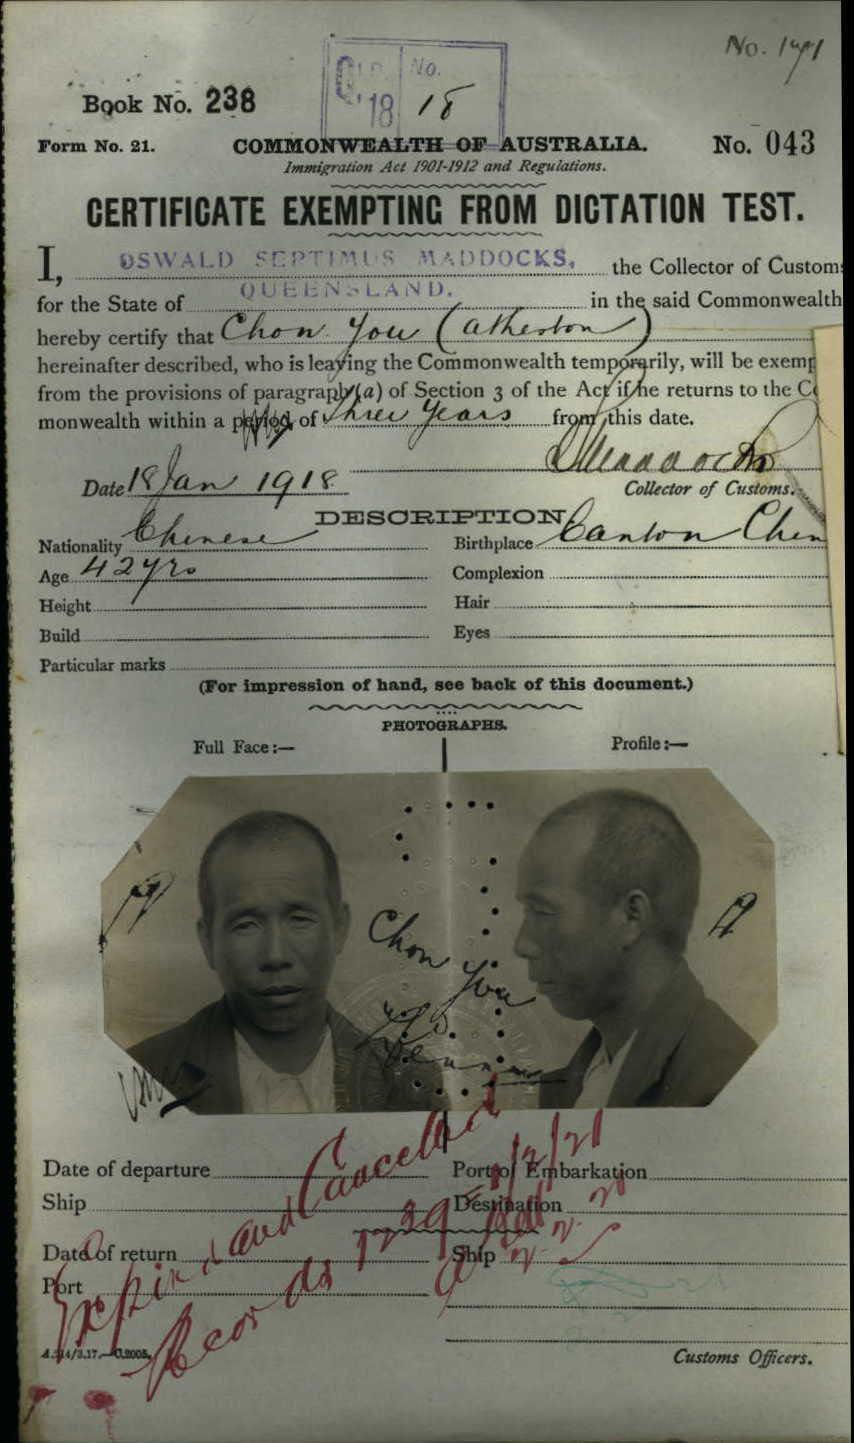 No. 1771
Book No. 238
QLD. No.
'18 18
Form No. 21.
COMMONWEALTH OF AUSTRALIA.
No. 043
Immigration Act 1901-1912 and Regulations.
CERTIFICATE EXEMPTING FROM DICTATION TEST.
I, OSWALD SEPTIMUS MADDOCKS, the Collector of Customs
for the State of QUEENSLAND. in the said Commonwealth
hereby certify that Chon You (Atherton)
hereinafter described, who is leaving the Commonwealth temporarily, will be exemp
from the provisions of paragraph (a) of Section 3 of the Act if he returns to the Co
monwealth within a period of Three Years from this date.
OSMaddocks
Date 18 Jan 1918
Collector of Customs.
DESCRIPTION
Nationality Chinese
Birthplace Canton Chin
Age 42 yrs
Complexion
Height
Hair
Build
Eyes
Particular marks
(For impression of hand, see back of this document.)
PHOTOGRAPHS.
Full Face:—
Profile:—
Chon You
Date of departure
Port of Embarkation
Ship
Destination
Date of return
Ship
Port
Expired and Cancelled
Records 1239
2/2/21
2.2.21
A.214/3.17.—C.2005.
Customs Officers.